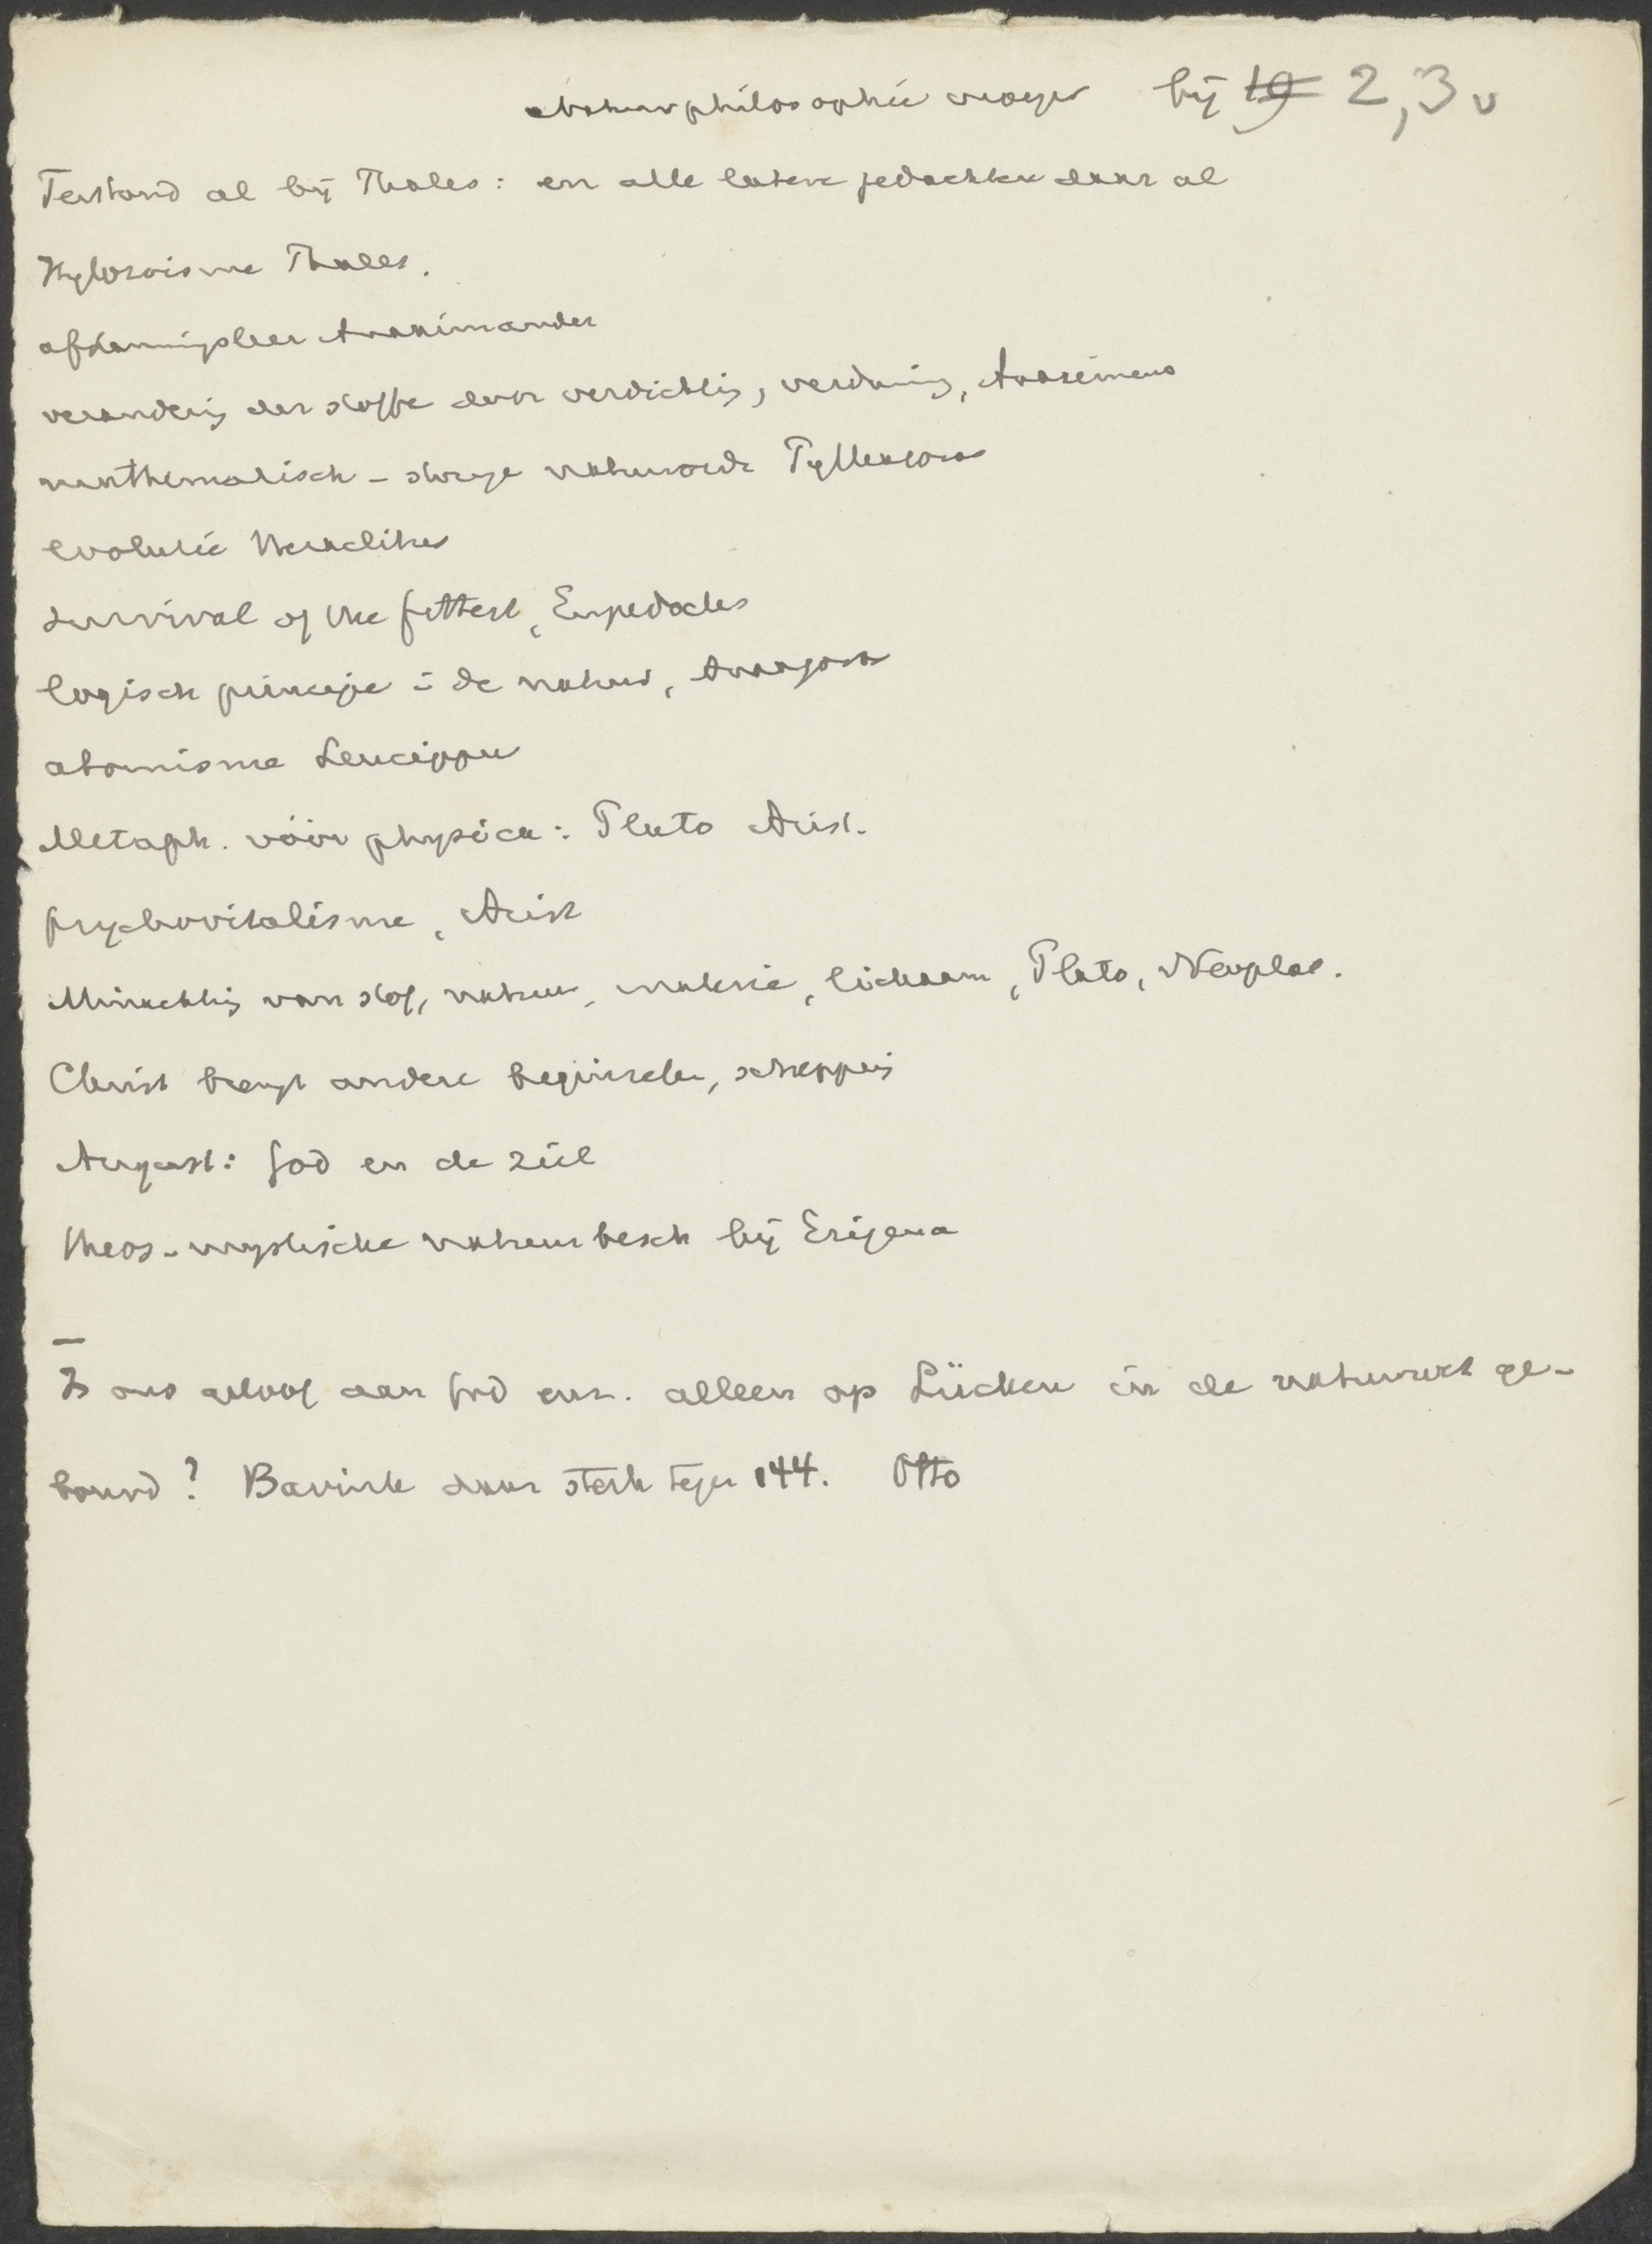 Natuurphilosophie vroeger bij 19 2,3 v
Terstond al bij Thales: en alle latere gedachten daar al
Hylozoisme Thales.
afstammingsleer Anaximander
verandering der stoffe door verdichting, verdunning, Anaximenes
mathematisch - strenge natuurorde Pythagoras
evolutie Heraclitus
survival of the fittest, Empedocles
logisch principe in de natuur, Anaxagoras
atomisme Leucippus
Metaph. vóór physica: Plato Arist.
psychovitalisme, Arist
Minachting van stof, natuur, materie, lichaam, Plato, Neoplat.
Christ brengt andere beginselen, schepping
August: God en de ziel
theos-mystische natuurbesch bij Erigena
Is ons geloof aan God enz. alleen op Lücken in de natuurwet ge-
bouwd? Bavink daar sterk tegen 144. Otto